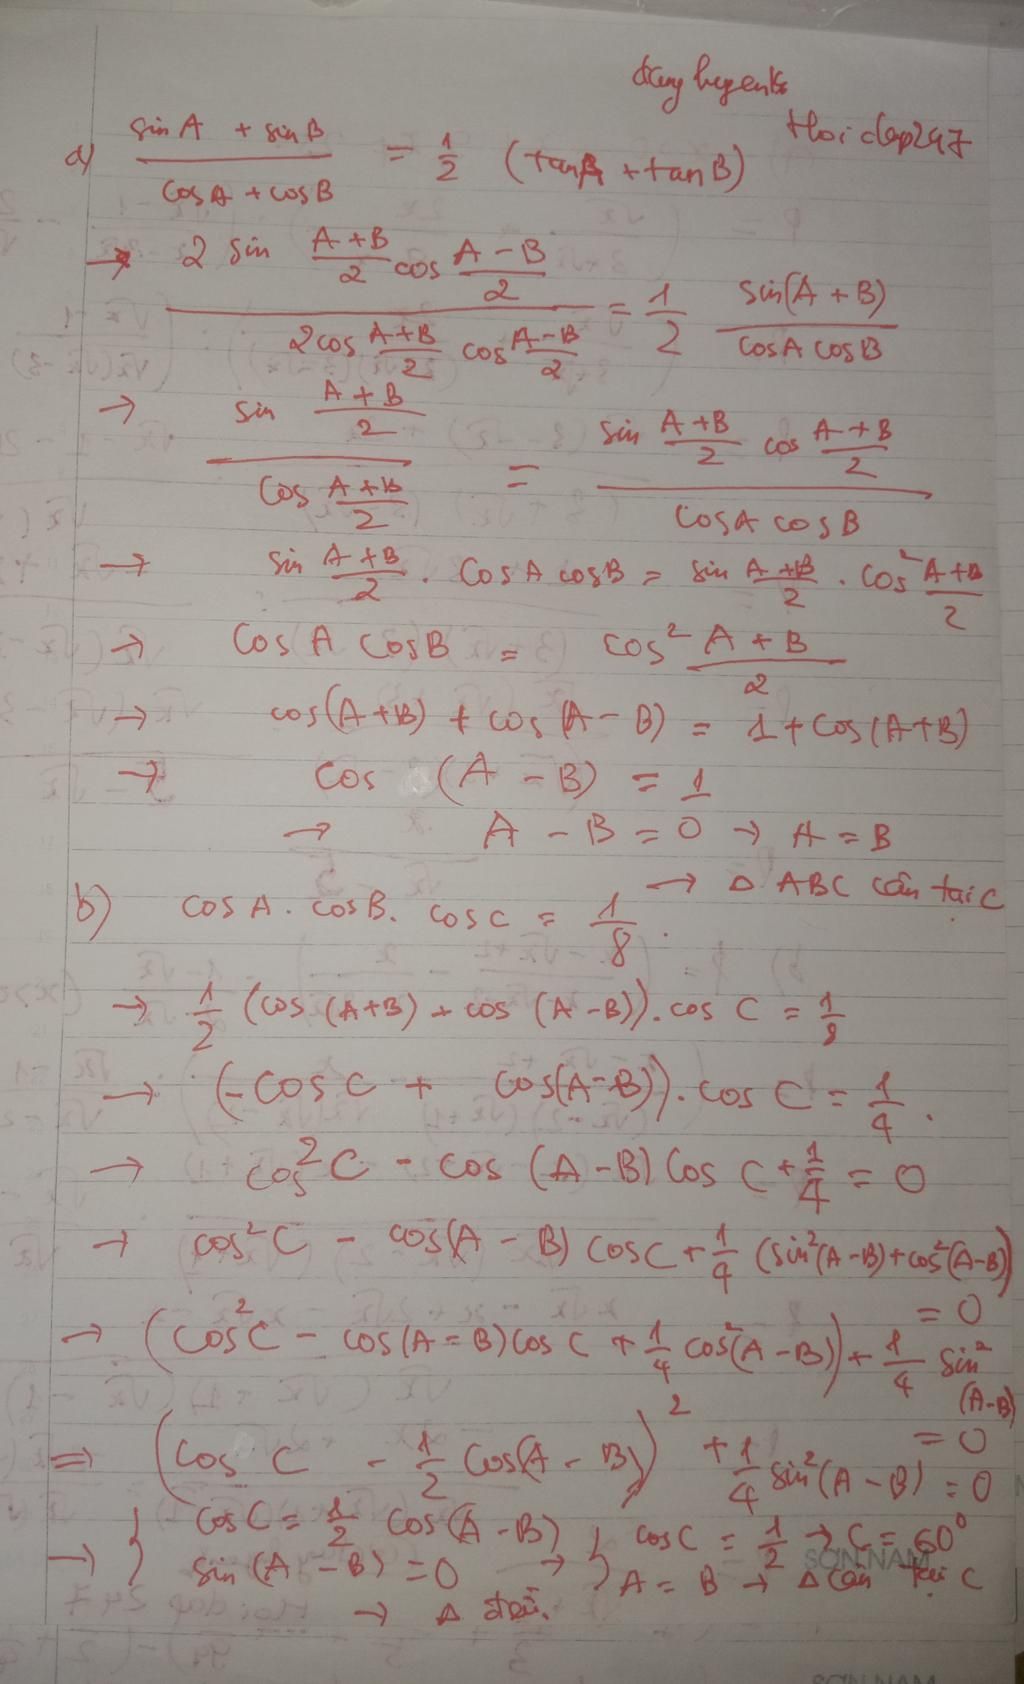 Hoidap247
a) (sin A + sin B) / (cos A + cos B) = 1/2 (tan A + tan B)
→ (2 sin (A+B)/2 cos (A−B)/2) / (2 cos (A+B)/2 cos (A−B)/2) = 1/2 sin(A+B) / (cos A cos B)
→ (sin (A+B)/2) / (cos (A+B)/2) = (sin (A+B)/2 cos (A+B)/2) / (cos A cos B)
→ sin (A+B)/2 . cos A cos B = sin (A+B)/2 . cos² (A+B)/2
→ cos A cos B = cos² (A+B)/2
→ cos(A+B) + cos(A−B) = 1 + cos(A+B)
→ cos (A − B) = 1
→ A − B = 0 → A = B
→ Δ ABC cân tại C
b) cos A . cos B . cos C = 1/8 .
→ 1/2 (cos (A+B) + cos (A−B)) . cos C = 1/8
→ (−cos C + cos(A−B)) . cos C = 1/4 .
→ cos² C − cos (A−B) cos C + 1/4 = 0
→ cos² C − cos(A − B) cos C + 1/4 (sin²(A−B) + cos²(A−B)) = 0
→ (cos² C − cos(A = B) cos C + 1/4 cos²(A − B)) + 1/4 sin² (A−B) = 0
⇒ (cos C − 1/2 cos(A − B))² + 1/4 sin²(A − B) = 0
→ } cos C = 1/2 cos(A − B) } cos C = 1/2 → C = 60°
sin (A − B) = 0 → A = B → Δ cân tại C
→ Δ đều.
SƠN NAM
SƠN NAM